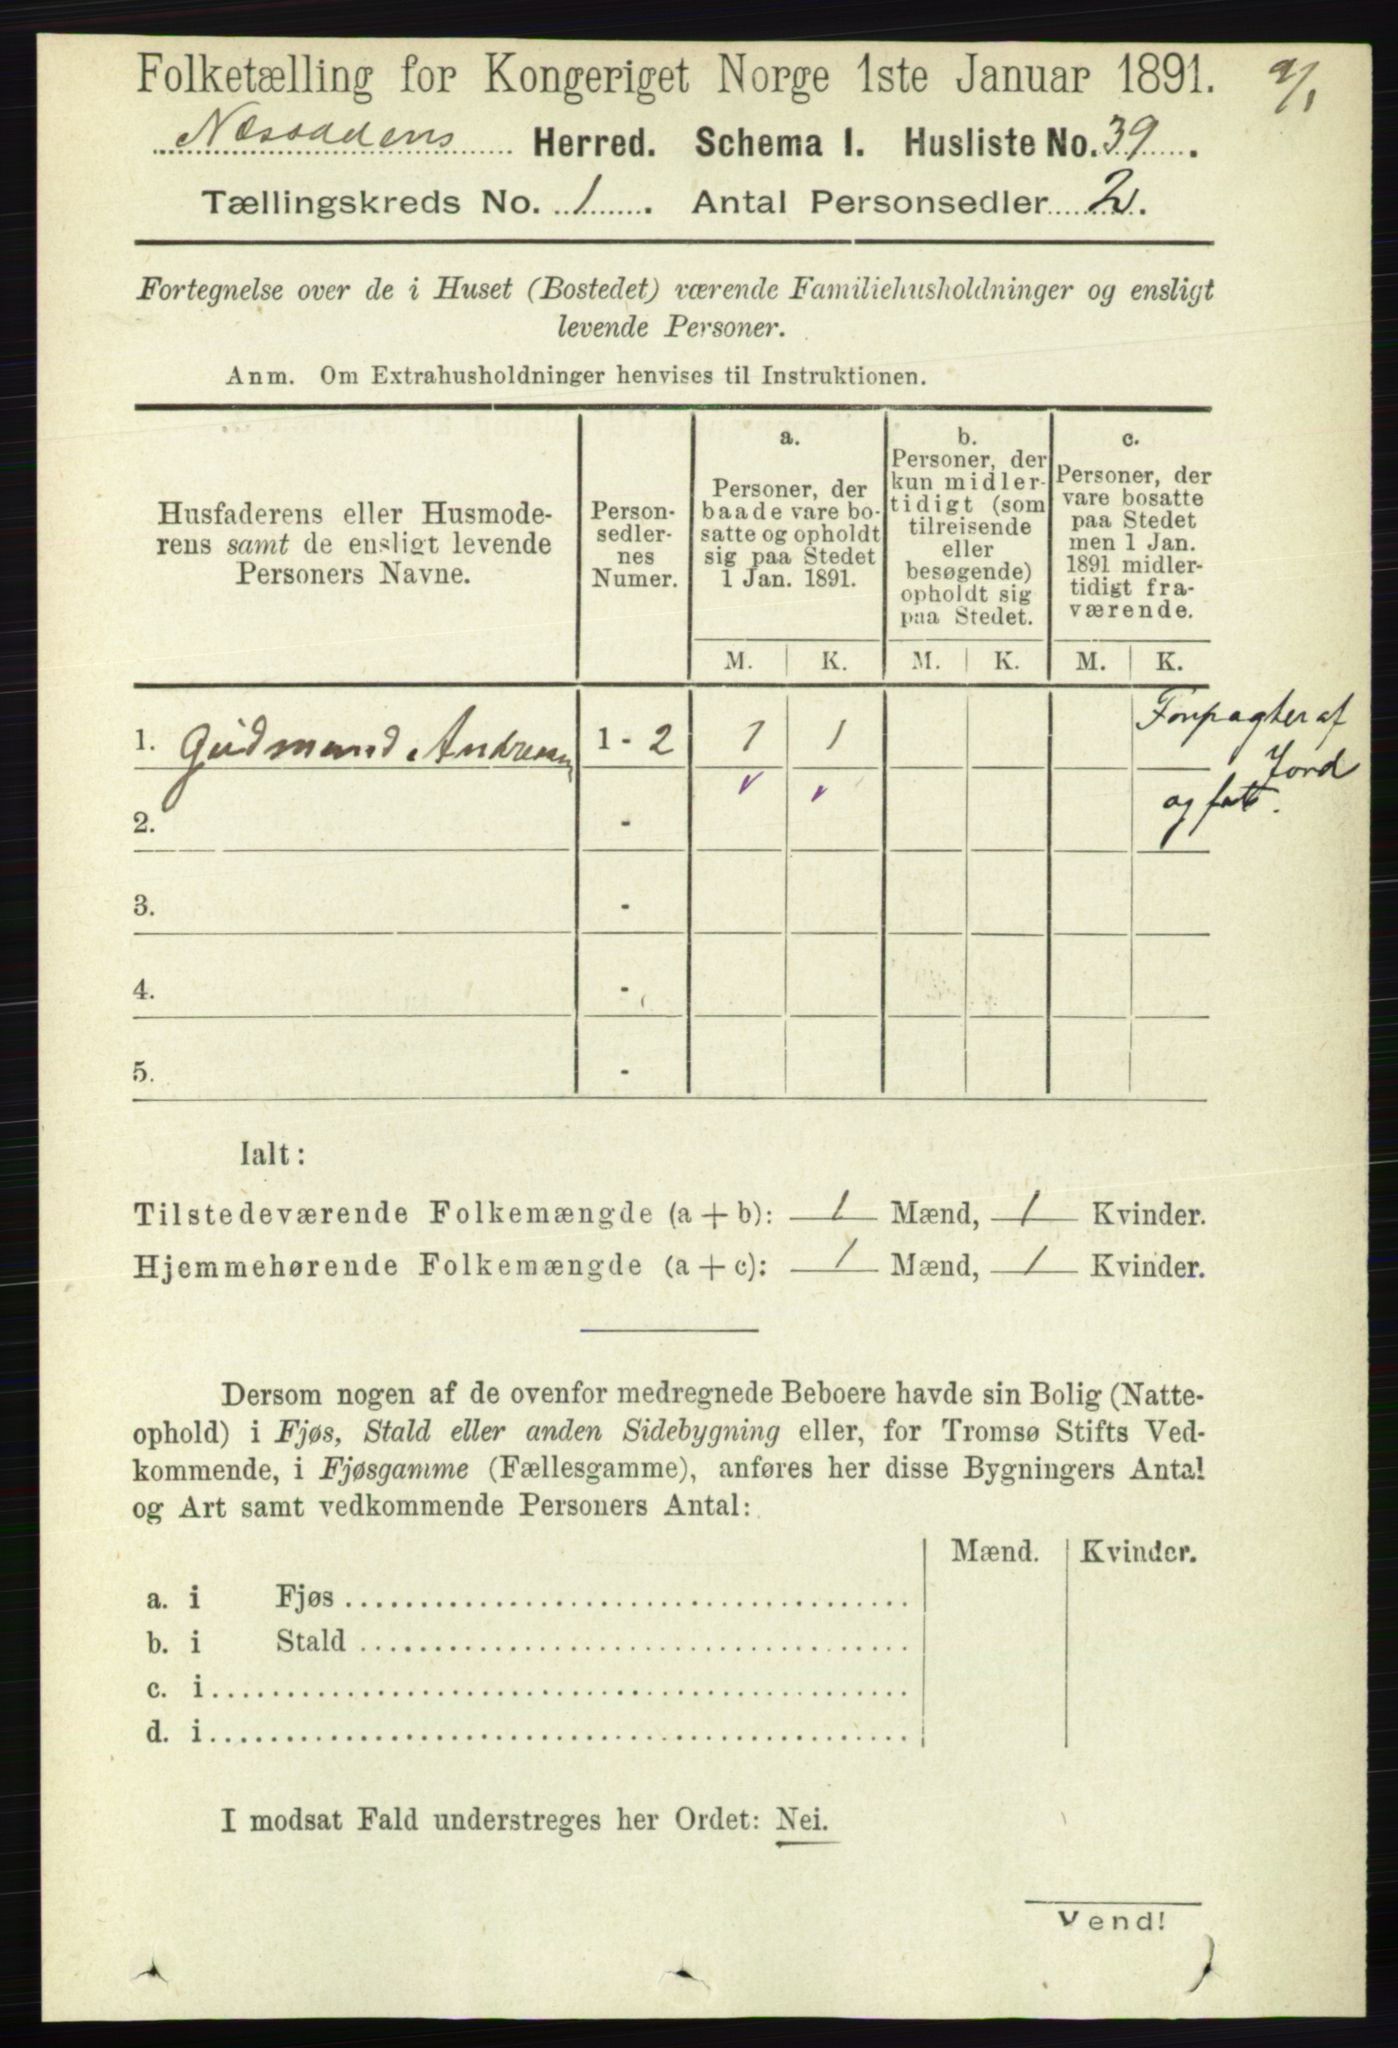 Folketælling for Kongeriget Norge 1ste Januar 1891.
Næsoddens Herred. Schema I. Husliste No. 39.
Tællingskreds No. 1. Antal Personsedler 2.
Fortegnelse over de i Huset (Bostedet) værende Familiehusholdninger og ensligt
levende Personer.
Anm. Om Extrahusholdninger henvises til Instruktionen.
Husfaderens eller Husmode-
rens samt de ensligt levende
Personers Navne.
Person-
sedler-
nes
Numer.
a.
Personer, der
baade vare bo-
satte og opholdt
sig paa Stedet
1 Jan. 1891.
b.
Personer, der
kun midler-
tidigt (som
tilreisende
eller
besøgende)
opholdt sig
paa Stedet.
c.
Personer, der
vare bosatte
paa Stedet
men 1 Jan.
1891 midler-
tidigt fra-
værende.
M. K. M. K. M. K.
1. Gudmund Andresen 1 - 2 1 1
Forpagter af
Jord
og
2. -
3. -
4. -
5. -
Ialt:
Tilstedeværende Folkemængde (a + b): 1 Mænd, 1 Kvinder.
Hjemmehørende Folkemængde (a + c): 1 Mænd, 1 Kvinder.
Dersom nogen af de ovenfor medregnede Beboere havde sin Bolig (Natte-
ophold) i Fjøs, Stald eller anden Sidebygning eller, for Tromsø Stifts Ved-
kommende, i Fjøsgamme (Fællesgamme), anføres her disse Bygningers Antal
og Art samt vedkommende Personers Antal:
Mænd. Kvinder.
a. i Fjøs
b. i Stald
c. i
d. i
I modsat Fald understreges her Ordet: Nei.
Vend!